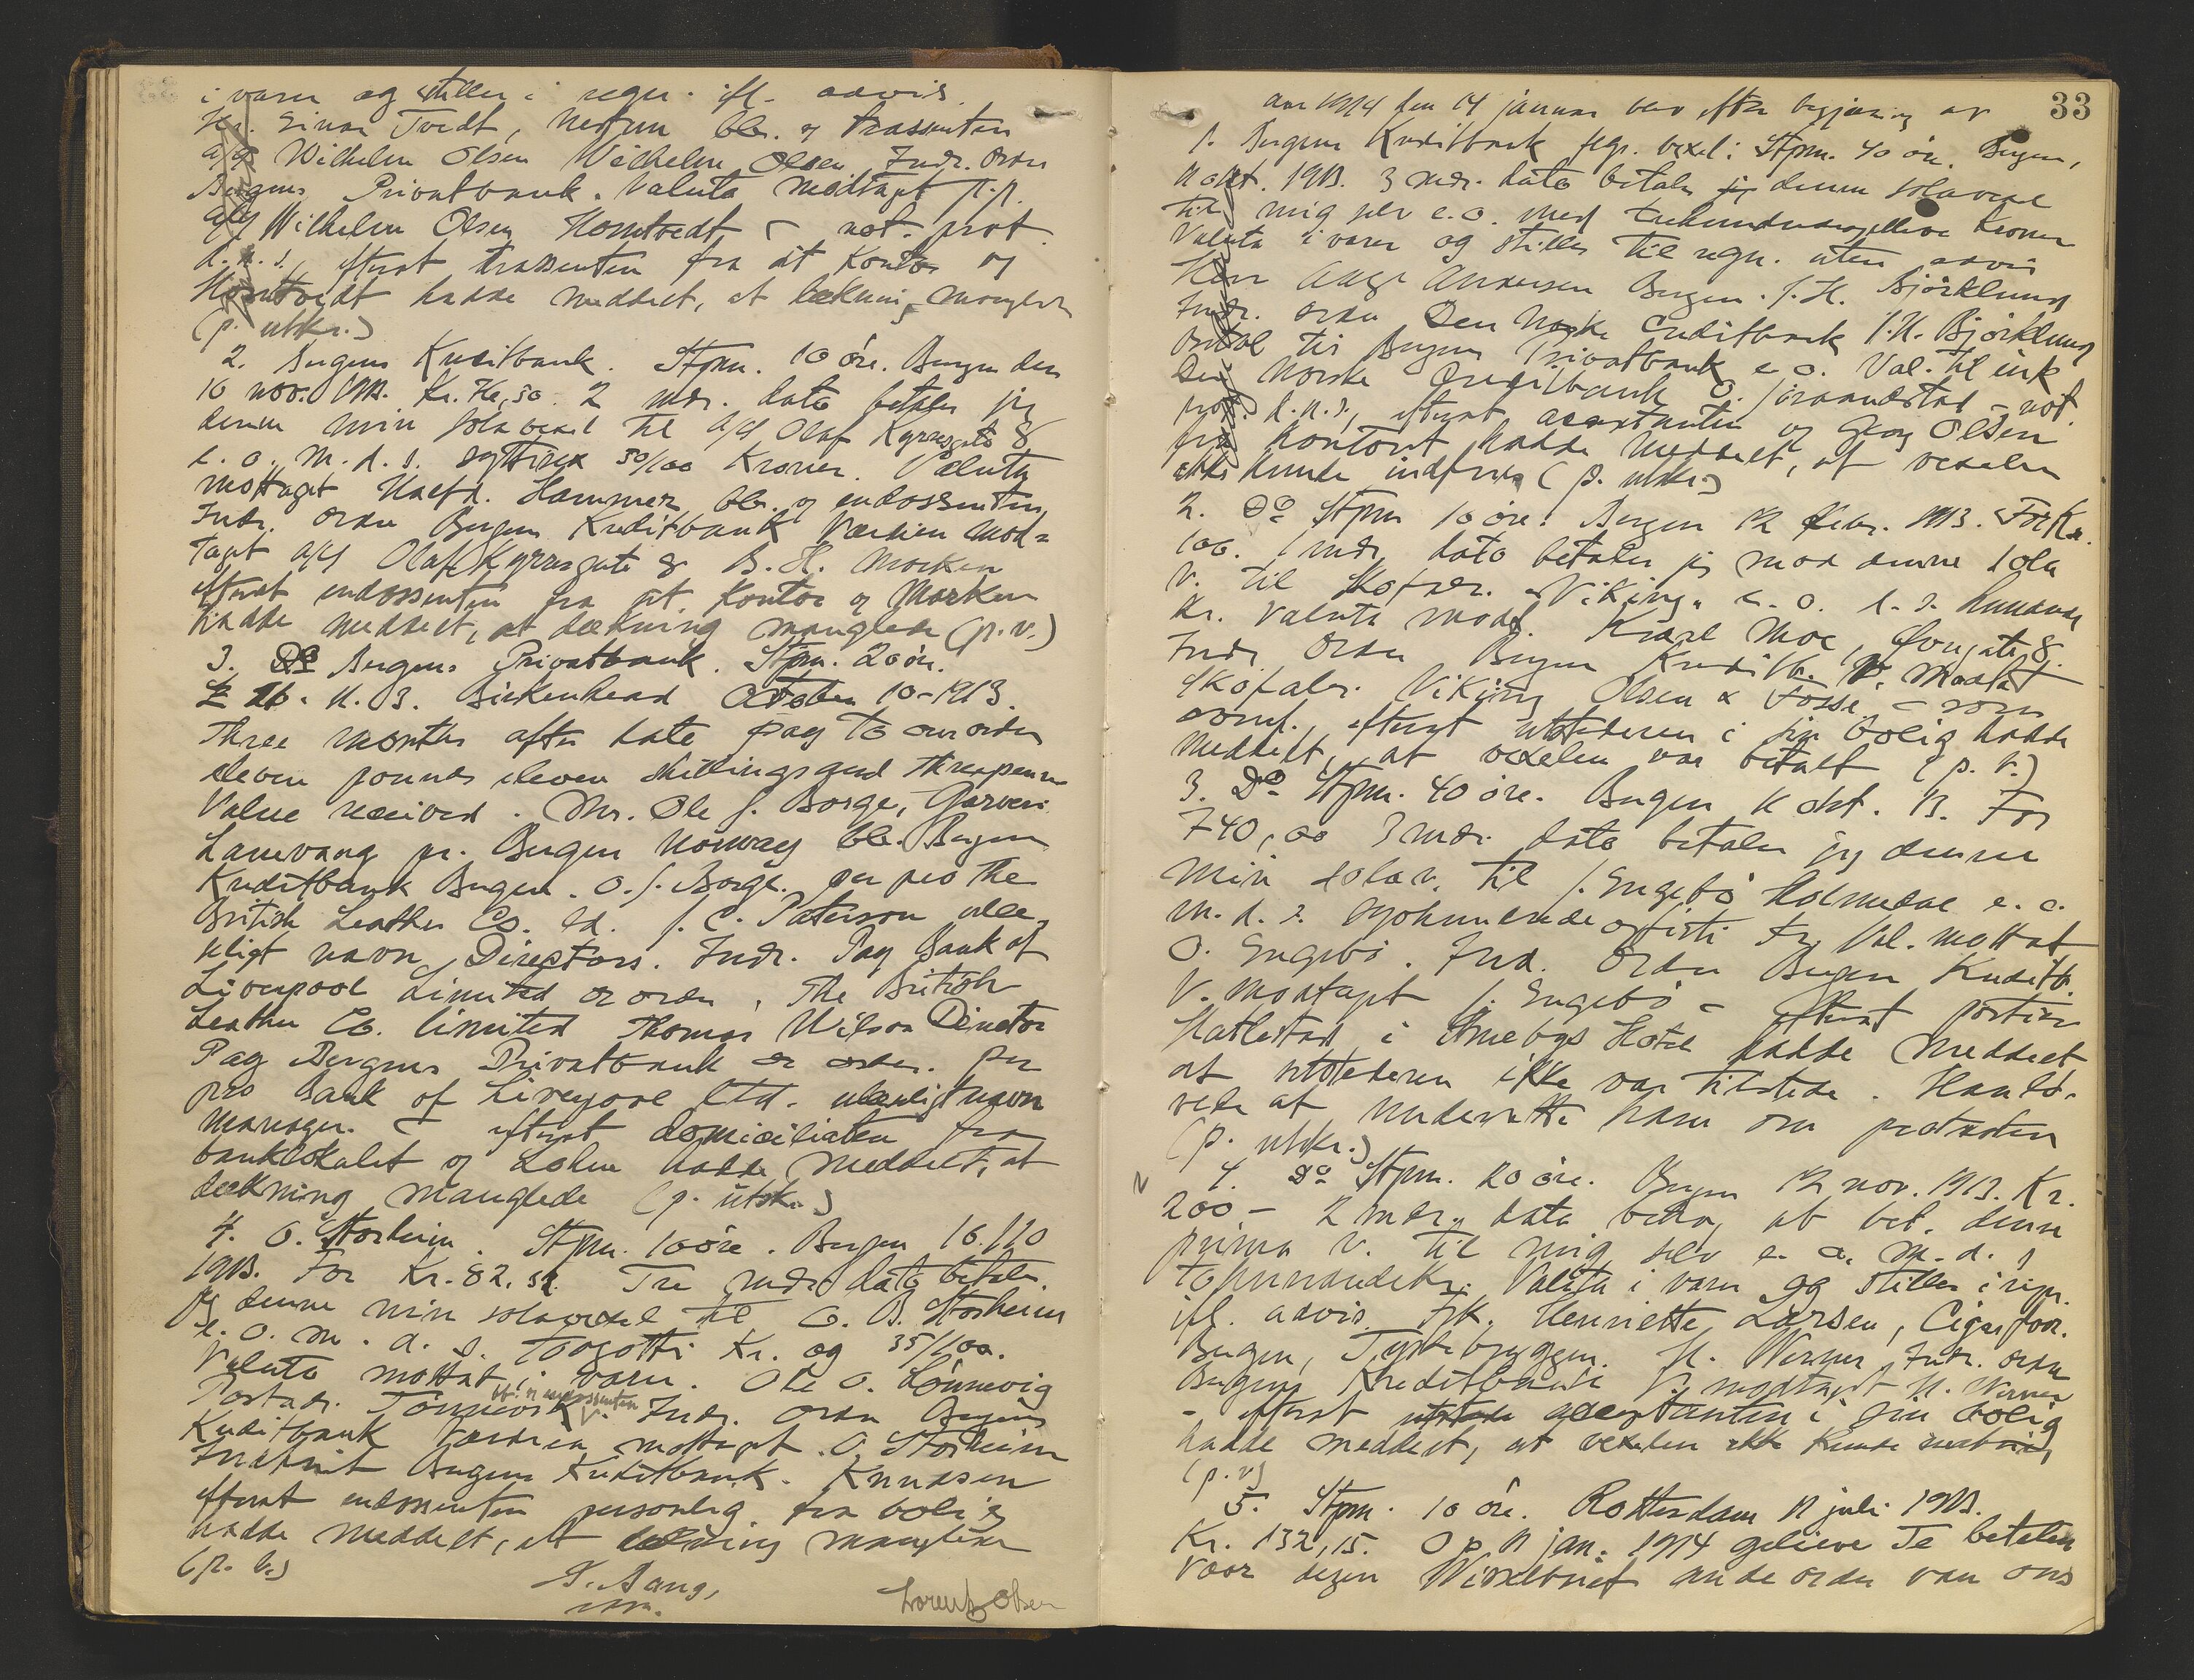 i varer og stilles i regn. ifl. advis.
Hr. Einar Tvedt, Nestun blr. og trassenten
a/s Wilhelm Olsen Wilhelm Olsen Indr. Ordre
Bergens Privatbank. Valuta modtaget p.p.
a/s Wilhelm Olsen Homtvedt - not. prot.
d.n.s., efterat trassenten fra sit kontor og
Homtvedt hadde meddelt, at dækning manglede
(p. utskr.)
2. Bergens Kreditbank. Stpm. 10 øre. Bergen den
10 nov. 1913. Kr. 76,50. 2 mdr. dato betaler jeg
denne min solavexel til A/S Olaf Kyrresgate 8
e. o. m. d. s. syttisex 50/100 Kroner. Valuta
mottaget Hammer blr. og endossenten
Indr. Ordre Bergens Kreditbank Værdien mod=
taget A/S Olaf Kyrresgate 8 B. H. Morken
efterat endossenten fra sit kontor og Morken
hadde meddelt, at dækning manglede (p. v.)
3. Do Bergens Privatbank. Stpm. 20 øre.
£ 11. 11. 3. Birkenhead October 10-1913.
Three months after date pay to our order
eleven pounds eleven shillings and threepence
Value received. Mr. Ole J. Borge, Garveri
Lanevang pr. Bergen Norway blr. Bergens
Kreditbank Bergen. O. J. Borge. per pro The
British Leather Co. Ld. J. C. Paterson ulæse
ligt navn Directors. Indr. Pay Bank of
Liverpool Limited or order, The British
Leather Co. limited Thomas Wilson Director
Pay Bergens Privatbank or order. per
pro Bank of Liverpool Ltd. ulæseligt navn
manager. - efterat domiciliaten fra
banklokalet og Lohne hadde meddelt, at
dækning manglede (p. utsk.)
4. O. Storheim. Stpm. 10 øre. Bergen 16./10
1913. For Kr. 82.35. Tre mdr. dato betaler
jeg denne min solavexel til O. B. Storheim
e. o. m. d. s. toogotti Kr. og 35/100.
Valuta mottat i varer. Ole O. Lønnevig
blr. og endossenten
Postadr. Tønnevik Indr. Ordre Bergens
Kreditbank Værdien mottaget. O. Storheim
Indfriet Bergens Kreditbank. Knudsen
efterat endossenten personlig fra bolig
hadde meddelt, at dækning manglede
(p. v.)
Lorentz Olsen
33
Aar 1914 den 14 januar blev efter begjæring av
1. Bergens Kreditbank flgr. vexel: Stpm. 40 øre. Bergen,
11 okt. 1913. 3 mdr. dato betaler jeg denne solavexel
til mig selv e.o. med Kroner
Valuta i varer og stilles til regn. uten advis
Herr Aage Andersen Bergen. J. H. Björklund
Indr. ordre Den Norske Creditbank J. H. Björklund
Betal til Bergens Privatbank e. o. Val. til ink
Den Norske Creditbank O. Jørandstad - not.
prot. d.n.s., efterat acceptanten og Georg Olsen
fra kontoret hadde meddelt, at vexelen
ikke kunde indfries (p. utskr.)
2. Do Stpm 10 øre. Bergen 12 febr. 1913. For Kr.
100. 1 mdr. dato betaler jeg mod denne sola
v. til Skofabr. "Viking" e. o. d. s. hundrede
kr. Valuta modt. Karl Moe, Øvregate 8.
Indr. Ordre Bergens Kreditb. V. Modtat
Skofabr. Viking Olsen & Fosse - som
ovenf., efterat utstederen i sin bolig hadde
meddelt, at vexelen var betalt (p. v.)
3. Do Stpm. 40 øre. Bergen 11 okt. 13. For
740,00 3 mdr. dato betaler jeg denne
min solav. til J. Engebø Holmedal e. o.
m. d. s. syvhundrede og firti kr. Val. mottat
O. Engebø. Ind. Ordre Bergens Kreditb.
V. modtaget J. Engebø - efterat portier
Hatlestad i Hotel hadde meddelt
at utstederen ikke var tilstede. Han lo-
vede at underrette ham om protesten
(p. utskr.)
4. Do Stpm. 20 øre. Bergen 12 nov. 1913. Kr.
200- 2 mdr. dato behag at bet. denne
prima v. til mig selv e. o. m. d. s
tohundredekr. Valuta i varer og stilles i regn.
ifl. advis. Frk. Henriette Larsen, Cigarforr.
Bergen, Tyskebryggen. H. Werner Indr. ordre
Bergens Kreditbank V. modtaget H. Werner
- efterat acceptanten i sin bolig
hadde meddelt, at vexelen ikke kunde
(p. v)
5. Stpm. 10 öre. Rotterdam 11 juli 1913.
Kr. 132,15. Op 11 jan. 1914 gelieve Te betalen
voor dezen Wisselbrief ande order van ons